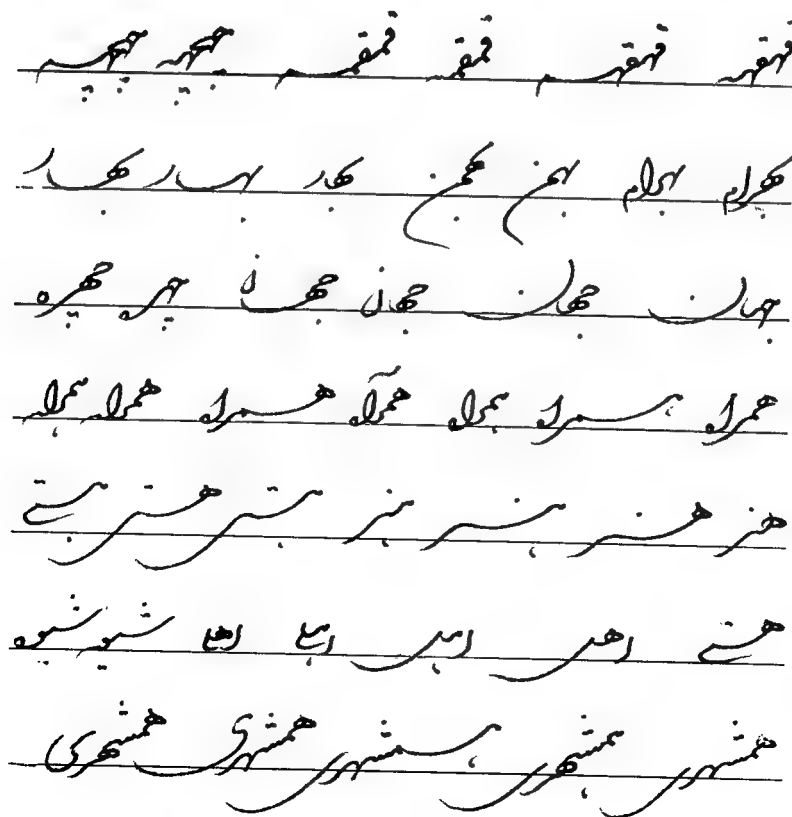 قهقهه قهقهه قمقمه قمقمه چهچهه چهچهه
بهرام بهرام بهمن بهمن بهار بهار بهار
جهان جهان جهان جهان چهره چهره
همراه همراه همراه همرآه همراه همراه همراه
هنر هنر هنر هنر هستی
هستی اهل اهل اهلی اهلی شیوه شیوه
همشهری همشهری همشهری همشهری همشهری